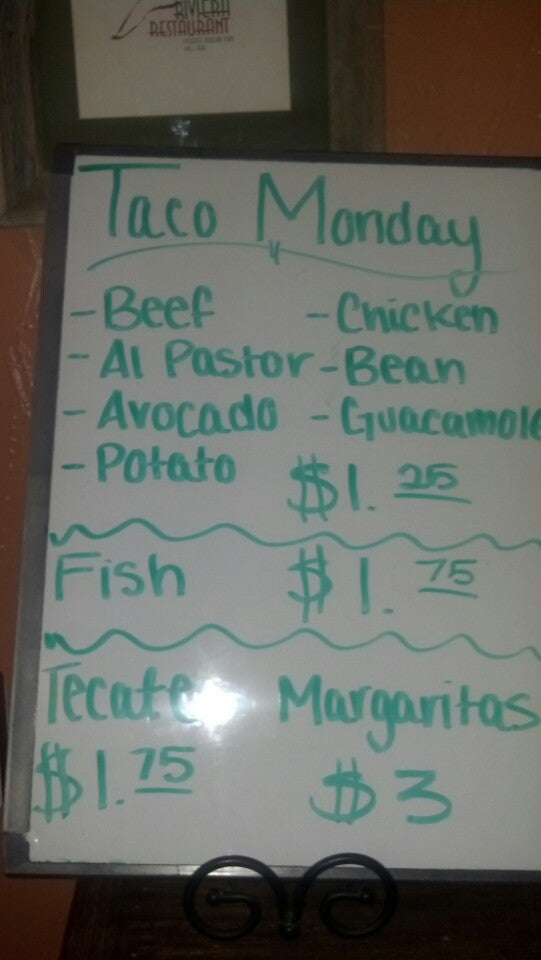 RIVIERA
RESTAURANT
Taco Monday
- Beef - Chicken
- Al Pastor - Bean
- Avocado - Guacamole
- Potato $1.25
Fish $1.75
Tecate Margaritas
$1.75 $3